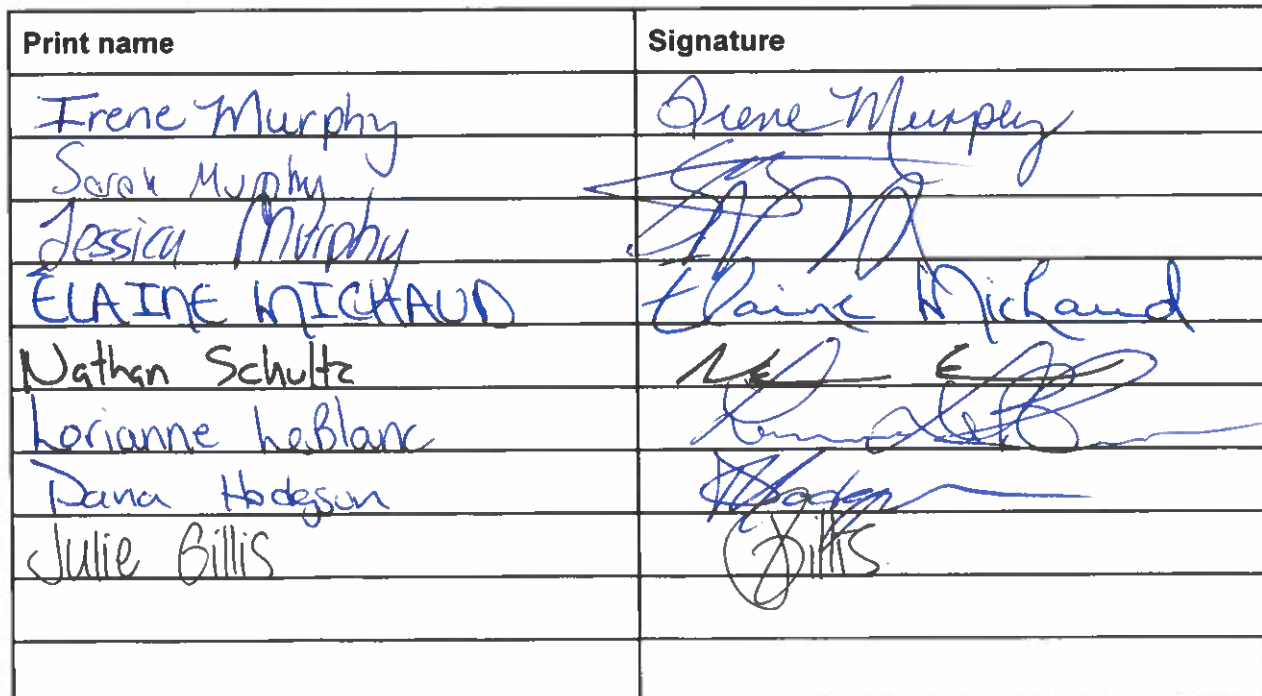 Print name Signature
Irene Murphy Irene Murphy
Sarah Murphy
Jessica Murphy
ELAINE MICHAUD Elaine Michaud
Nathan Schultz
Lorianne LeBlanc
Dana Hodgson
Julie Gillis Gillis